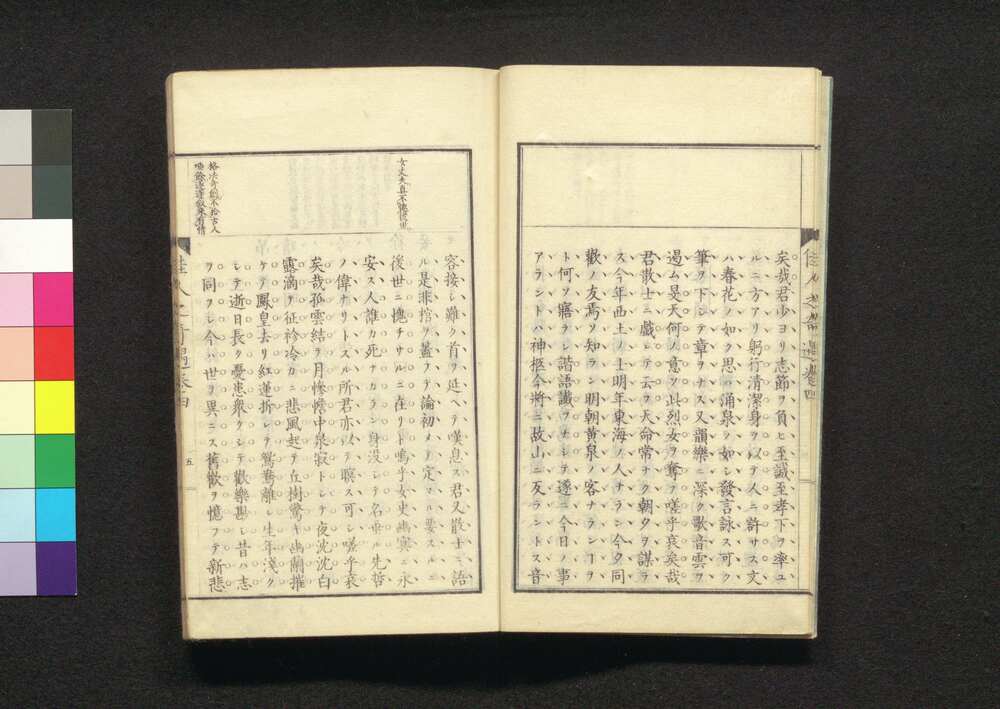 佳人之奇遇卷四
矣哉君少ヨリ志節ヲ負ヒ至誠至孝下ヲ率ユ
ルニ方アリ躬行清潔身ヲ以テ人ニ許サス文
ハ春花ノ如ク思ハ涌泉ノ如シ發言詠ス可ク
筆ヲ下シテ章ヲナス又韻樂ニ深ク歌音雲ヲ
遏ム旻天何ノ意ソ此烈女ヲ奪フ嗟乎哀矣哉
君散士ニ戲レテ云フ天命常ナク朝夕ヲ謀ラ
ス今年西土ノ士明年東海ノ人ナラン今夕同
歡ノ友焉ソ知ラン明朝黄泉ノ客ナランヿヲ
ト何ソ寤ラン諧語讖ヲナシテ遂ニ今日ノ事
アラントハ神柩今將ニ故山ニ反ラントス音
容接シ難ク首ヲ延ヘテ嘆息ス君又散士ニ語
ル是非棺ヲ蓋フテ論初メテ定マル要スルニ
後世ニ愧チサルニ在リト嗚乎女史幽冥ニ永
安ス人誰カ死ナカラン身沒シテ名垂ル先哲
ノ偉ナリトスル所君亦以テ瞑ス可シ嗟乎哀
矣哉孤雲結ヲ月慘憺中泉寂トシテ夜沈沈白
露滴テ征衿冷カニ悲風起テ丘樹驚キ幽蘭摧
ケテ鳳皇去リ紅蓮折レテ鴛鴦離レ生年淺ク
シテ逝日長ク憂患衆クシテ歡樂尠シ昔ハ志
ヲ同フシ今ハ世ヲ異ニス舊歡ヲ憶フテ新悲
女丈夫真不愧
佳人之奇遇卷四
五